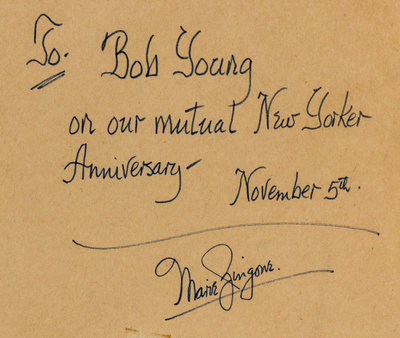 To. Bob Young
on our mutual New Yorker
Anniversary-
November 5th.
Marie Zingone.